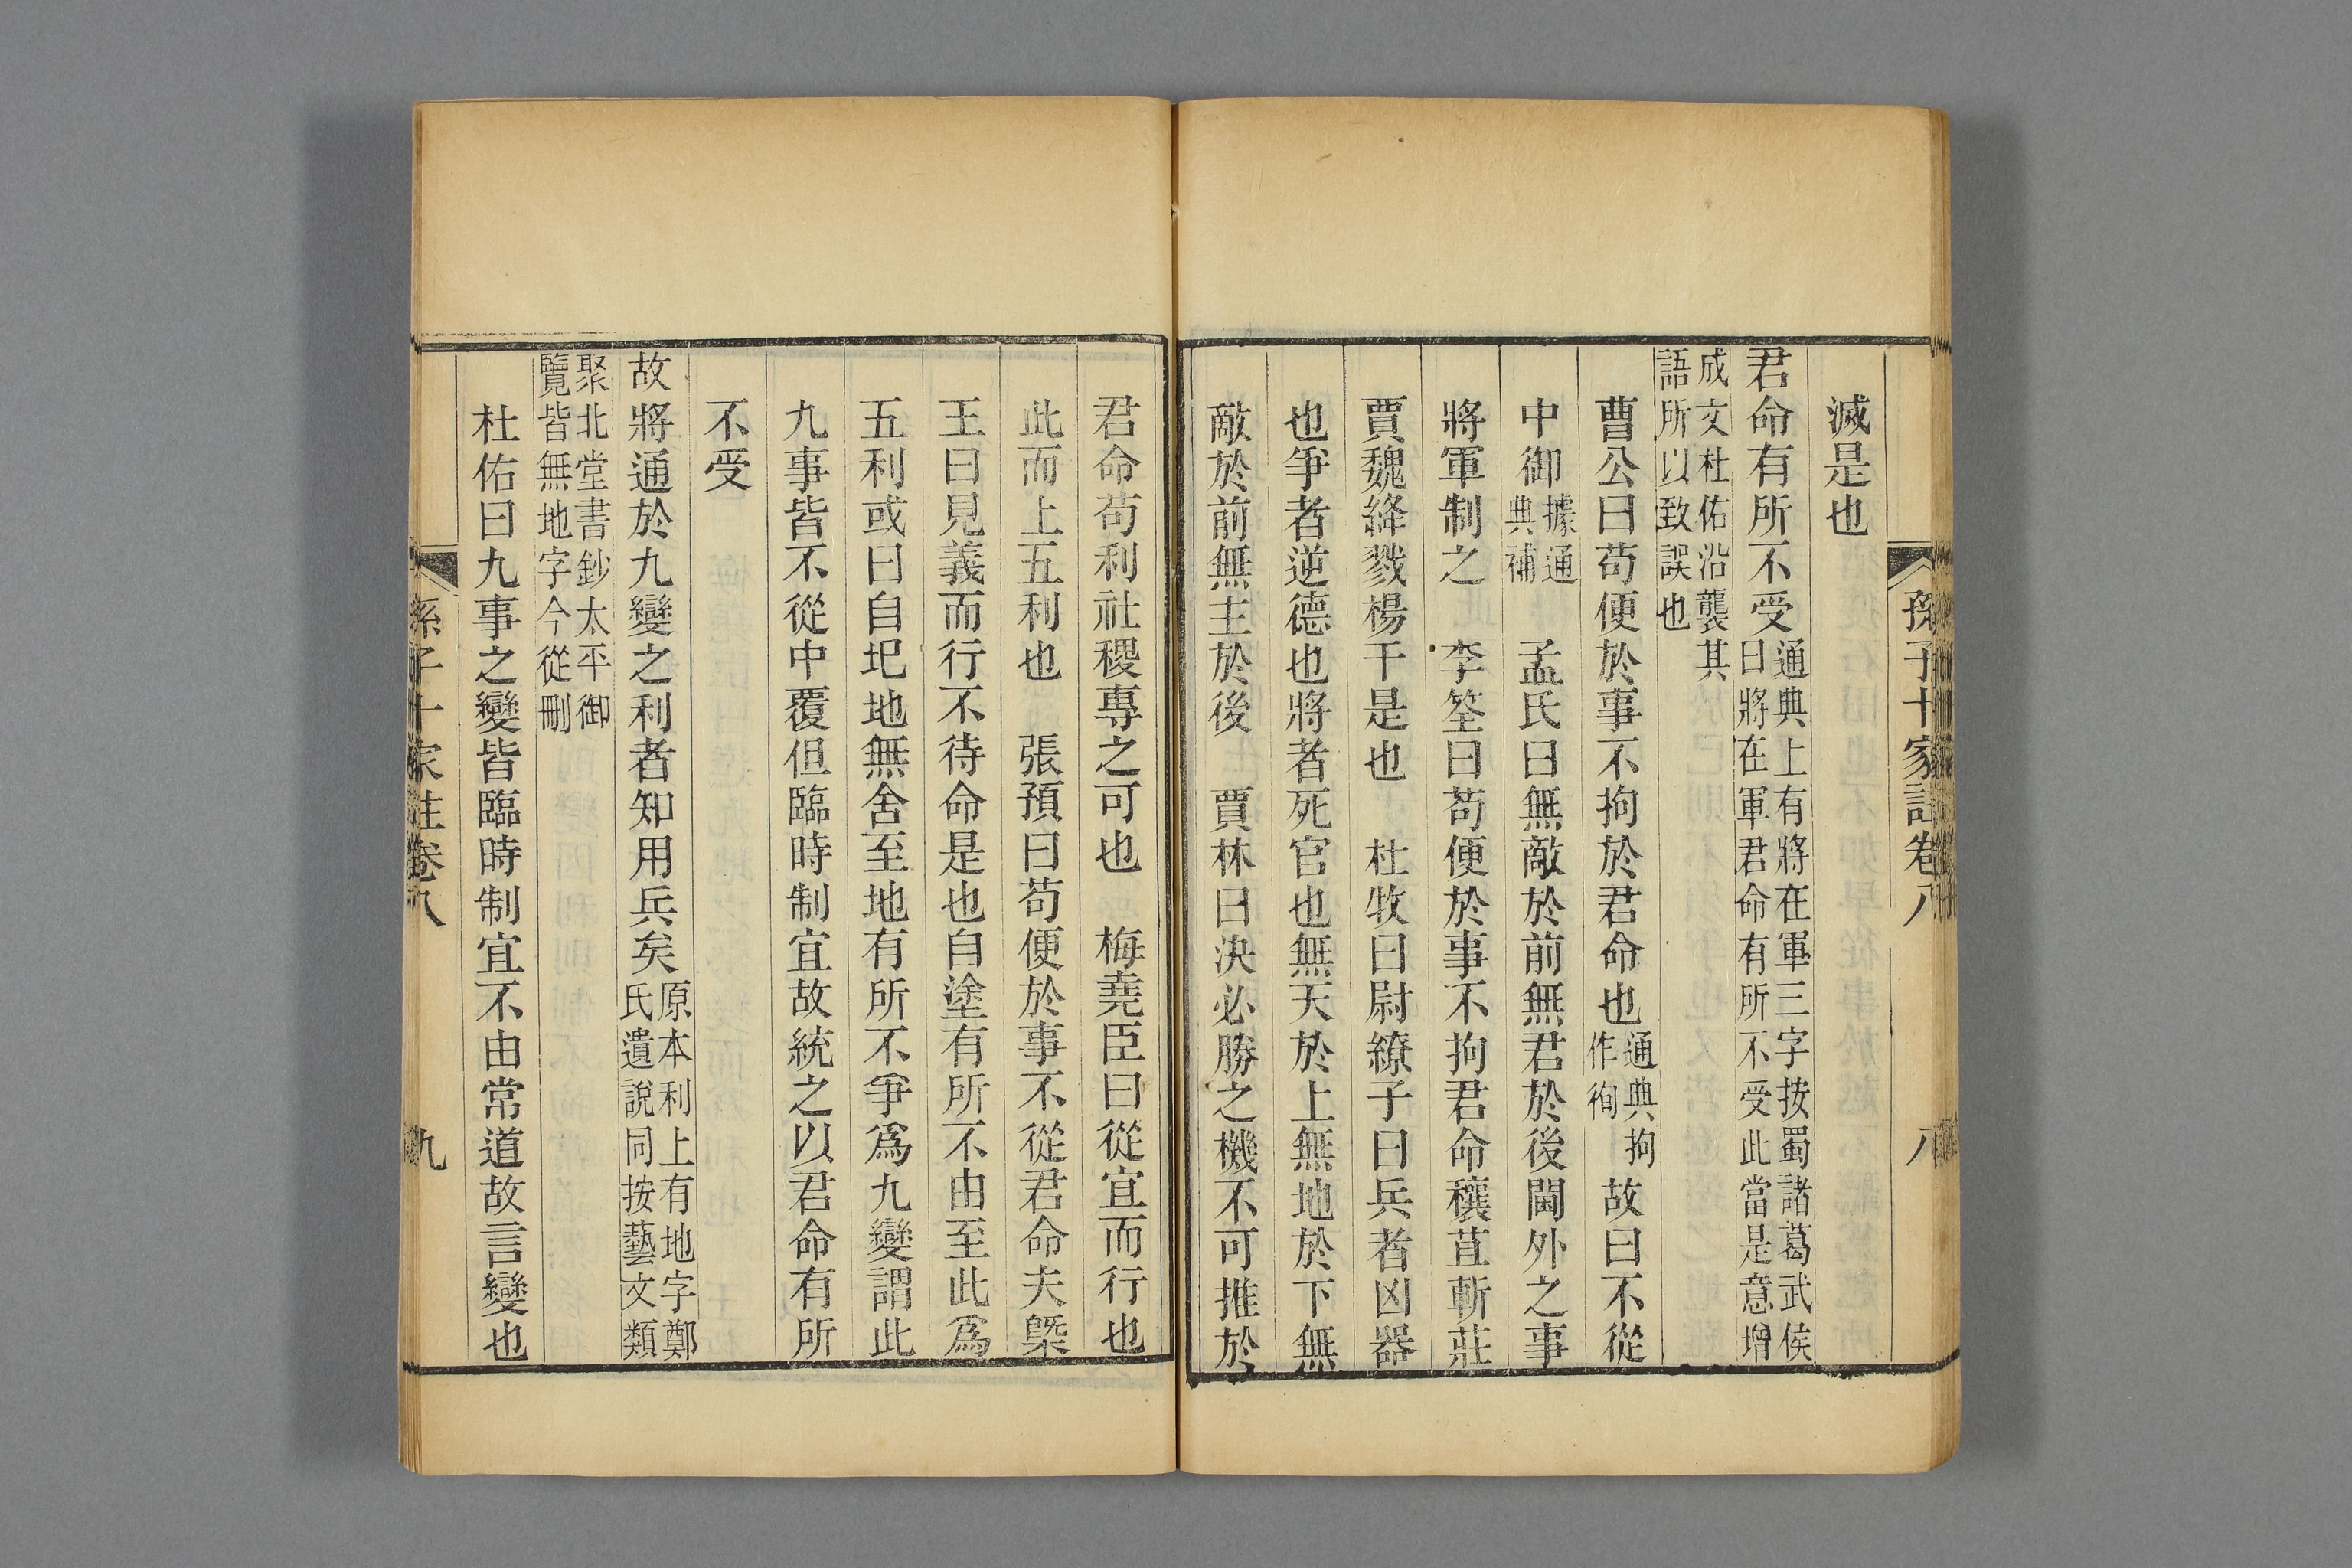 孫子十家註卷八 八
滅是也
君命有所不受通典上有將在軍三字按蜀諸葛武侯曰將在軍君命有所不受此當是意增
成文杜佑沿襲其語所以致誤也
曹公曰苟便於事不拘於君命也通典拘作徇故曰不從
中御據通典補 孟氏曰無敵於前無君於後閫外之事
將軍制之 李筌曰苟便於事不拘君命穰苴斬莊
賈魏絳戮楊干是也 杜牧曰尉繚子曰兵者凶器
也爭者逆德也將者死官也無天於上無地於下無
敵於前無主於後 賈林曰決必勝之機不可推於
君命苟利社稷專之可也 梅堯臣曰從宜而行也
此而上五利也 張預曰苟便於事不從君命夫槩
王曰見義而行不待命是也自塗有所不由至此爲
五利或曰自圯地無舍至地有所不爭爲九變謂此
九事皆不從中覆但臨時制宜故統之以君命有所
不受
故將通於九變之利者知用兵矣原本利上有地字鄭氏遺說同按藝文類
聚北堂書鈔太平御覽皆無地字今從刪
杜佑曰九事之變皆臨時制宜不由常道故言變也
孫子十家註卷八 九